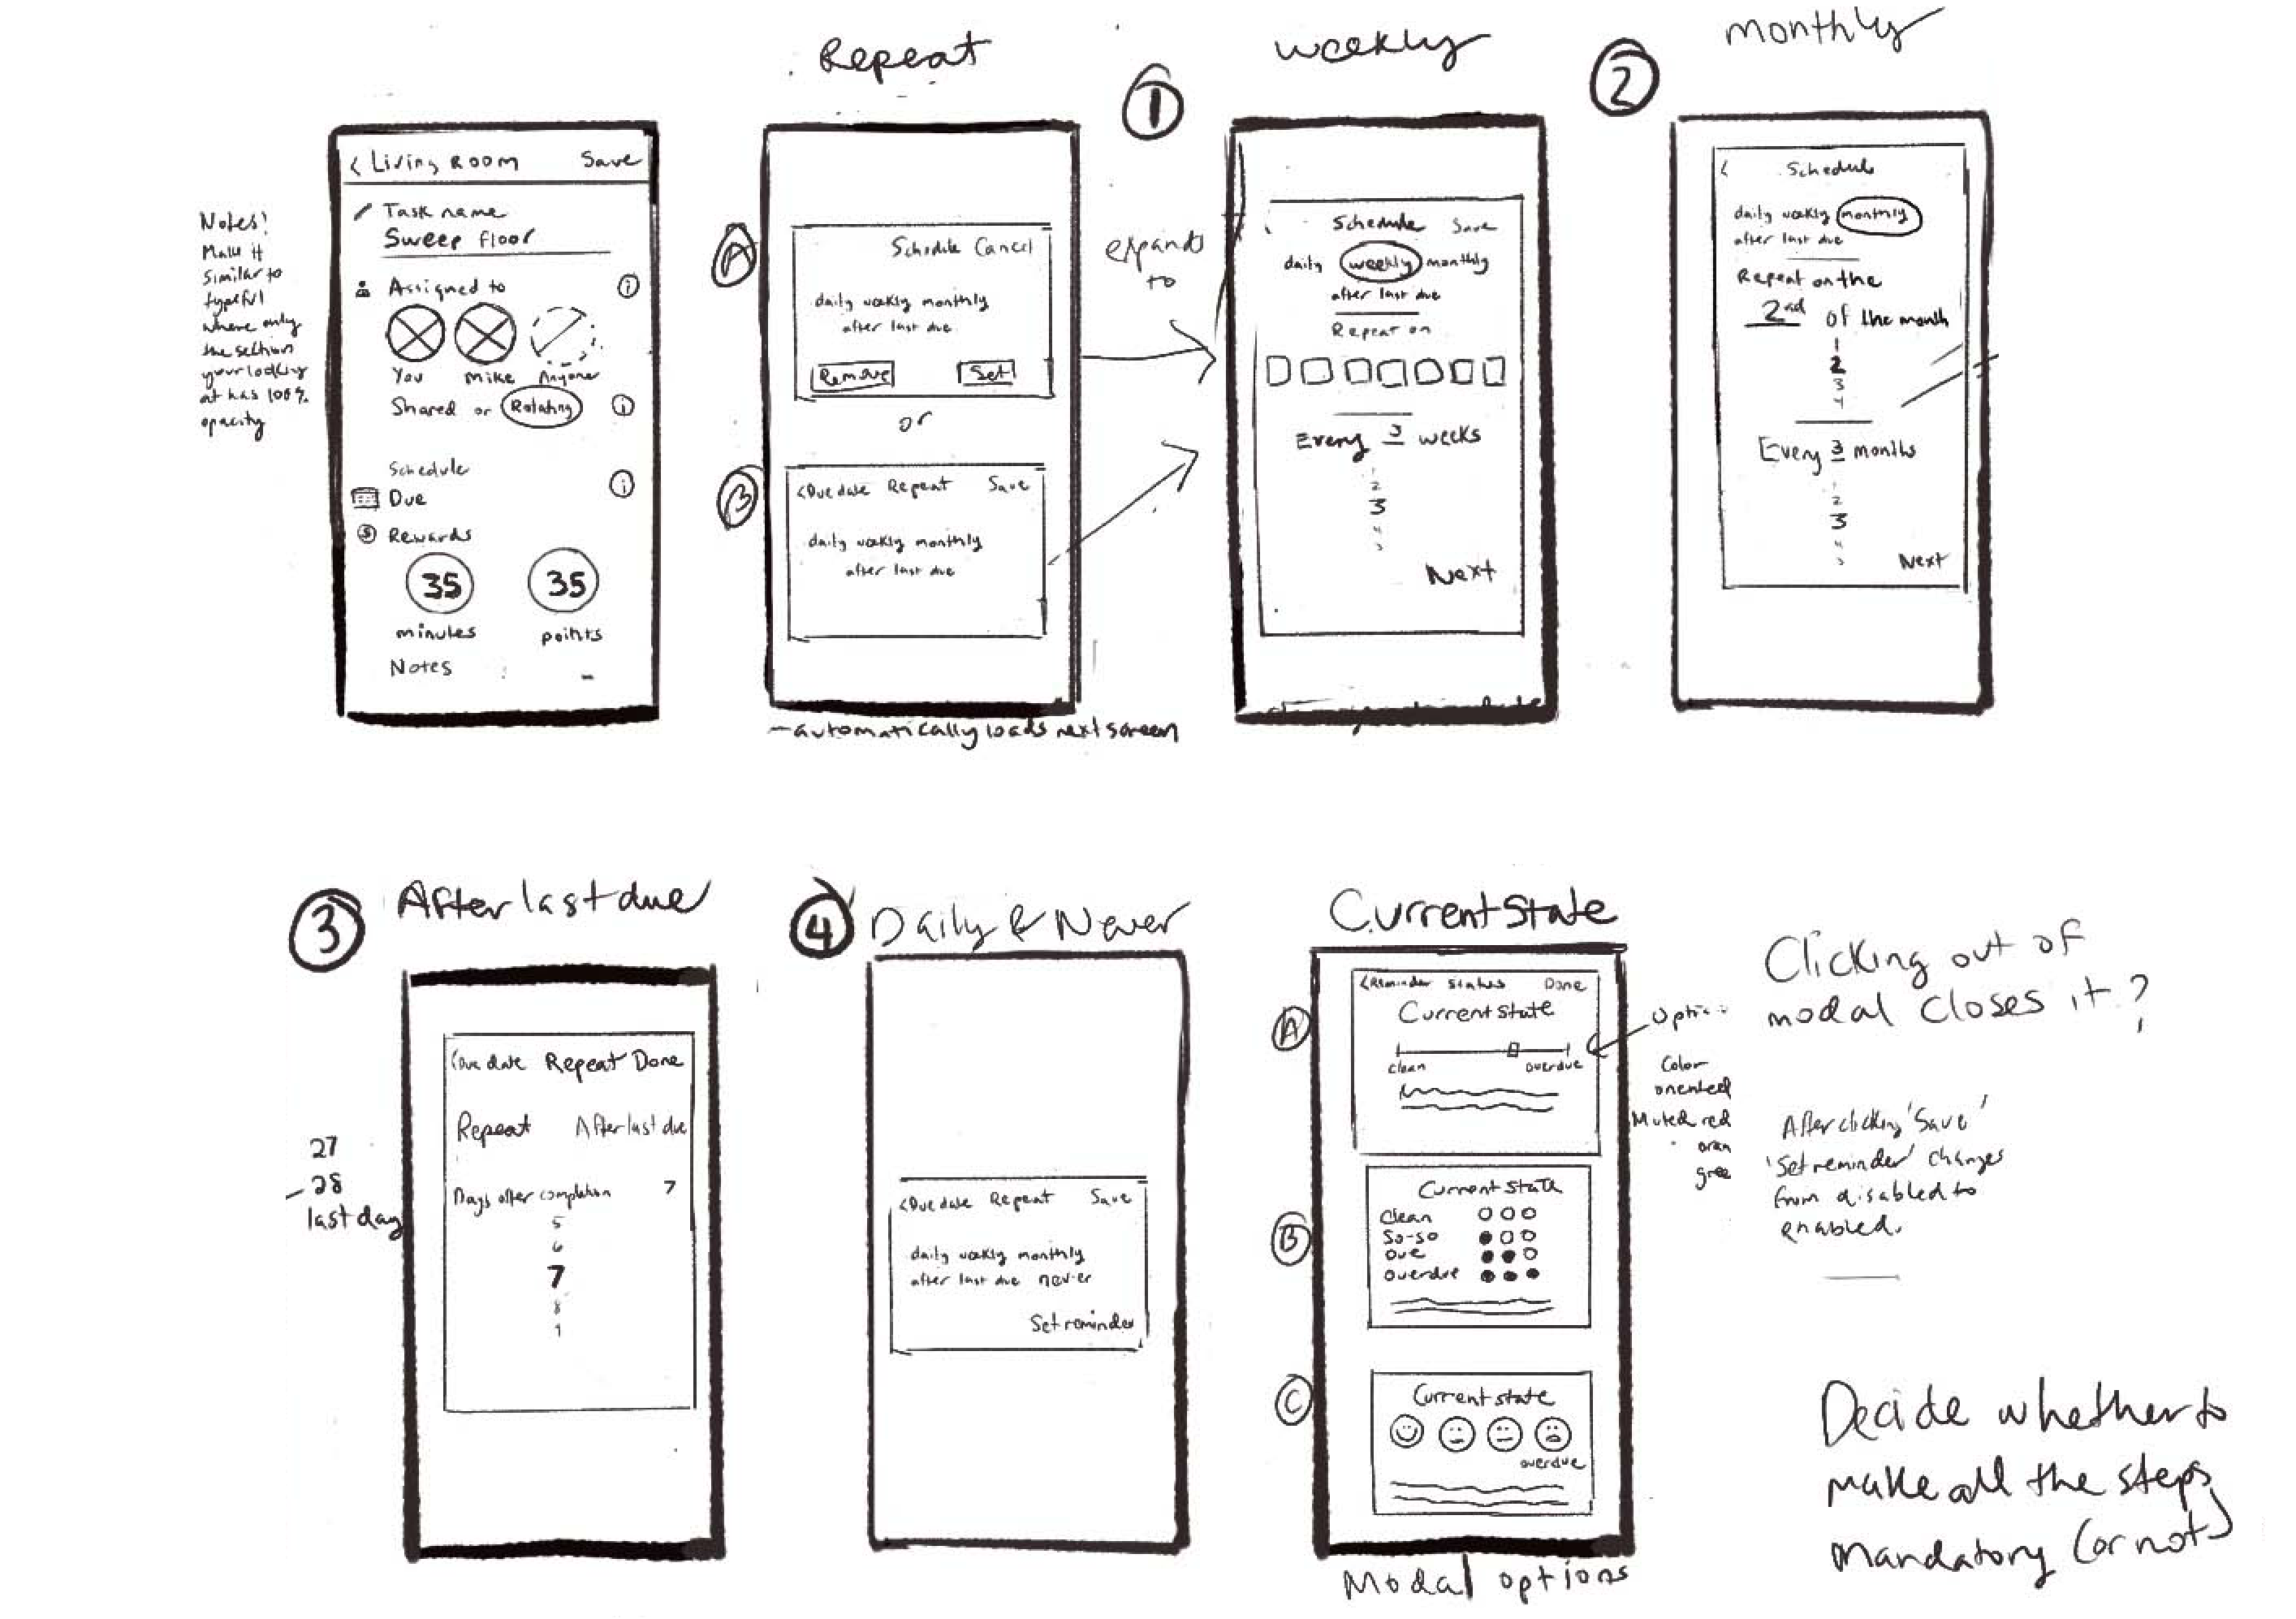 Repeat
weekly
monthly
1
2
Notes!
Make it
similar to
where only
the section
your looking
at has 100%
opacity
< Living Room Save
Task name
Sweep floor
Assigned to i
You Mike Anyone
Shared or Rotating i
Schedule
Due i
$ Rewards
35 35
minutes points
Notes
A
Schedule Cancel
daily weekly monthly
after last due
Remove Set
or
B
<Due date Repeat Save
daily weekly monthly
after last due
-automatically loads next screen
expands
to
Schedule Save
daily weekly monthly
after last due
Repeat on
Every 3 weeks
1
2
3
4
5
Next
< Schedule
daily weekly monthly
after last due
Repeat on the
2nd of the month
1
2
3
4
Every 3 months
1
2
3
4
5
Next
3 After last due
4 Daily & Never
Current State
27
-28
last day
<Due date Repeat Done
Repeat After last due
Days after completion 7
5
6
7
8
9
<Due date Repeat Save
daily weekly monthly
after last due never
Set reminder
A
<Reminder Status Done
Current State
clean overdue
B
Current State
Clean
So-so
Due
Overdue
C
Current state
overdue
Modal options
Color
oriented
Muted red
oran
gree
Clicking out of
modal closes it?
After clicking 'Save'
'Set reminder' changes
from disabled to
enabled.
Decide whether to
make all the steps
mandatory (or not)